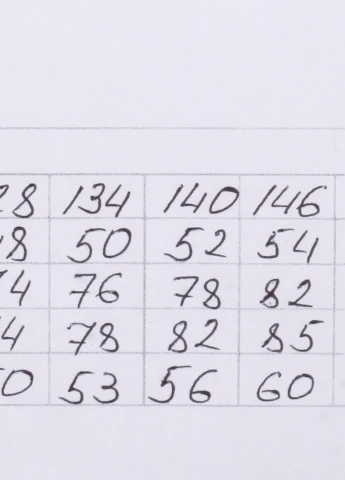 28 134 140 146
48 50 52 54
74 76 78 82
74 78 82 85
50 53 56 60